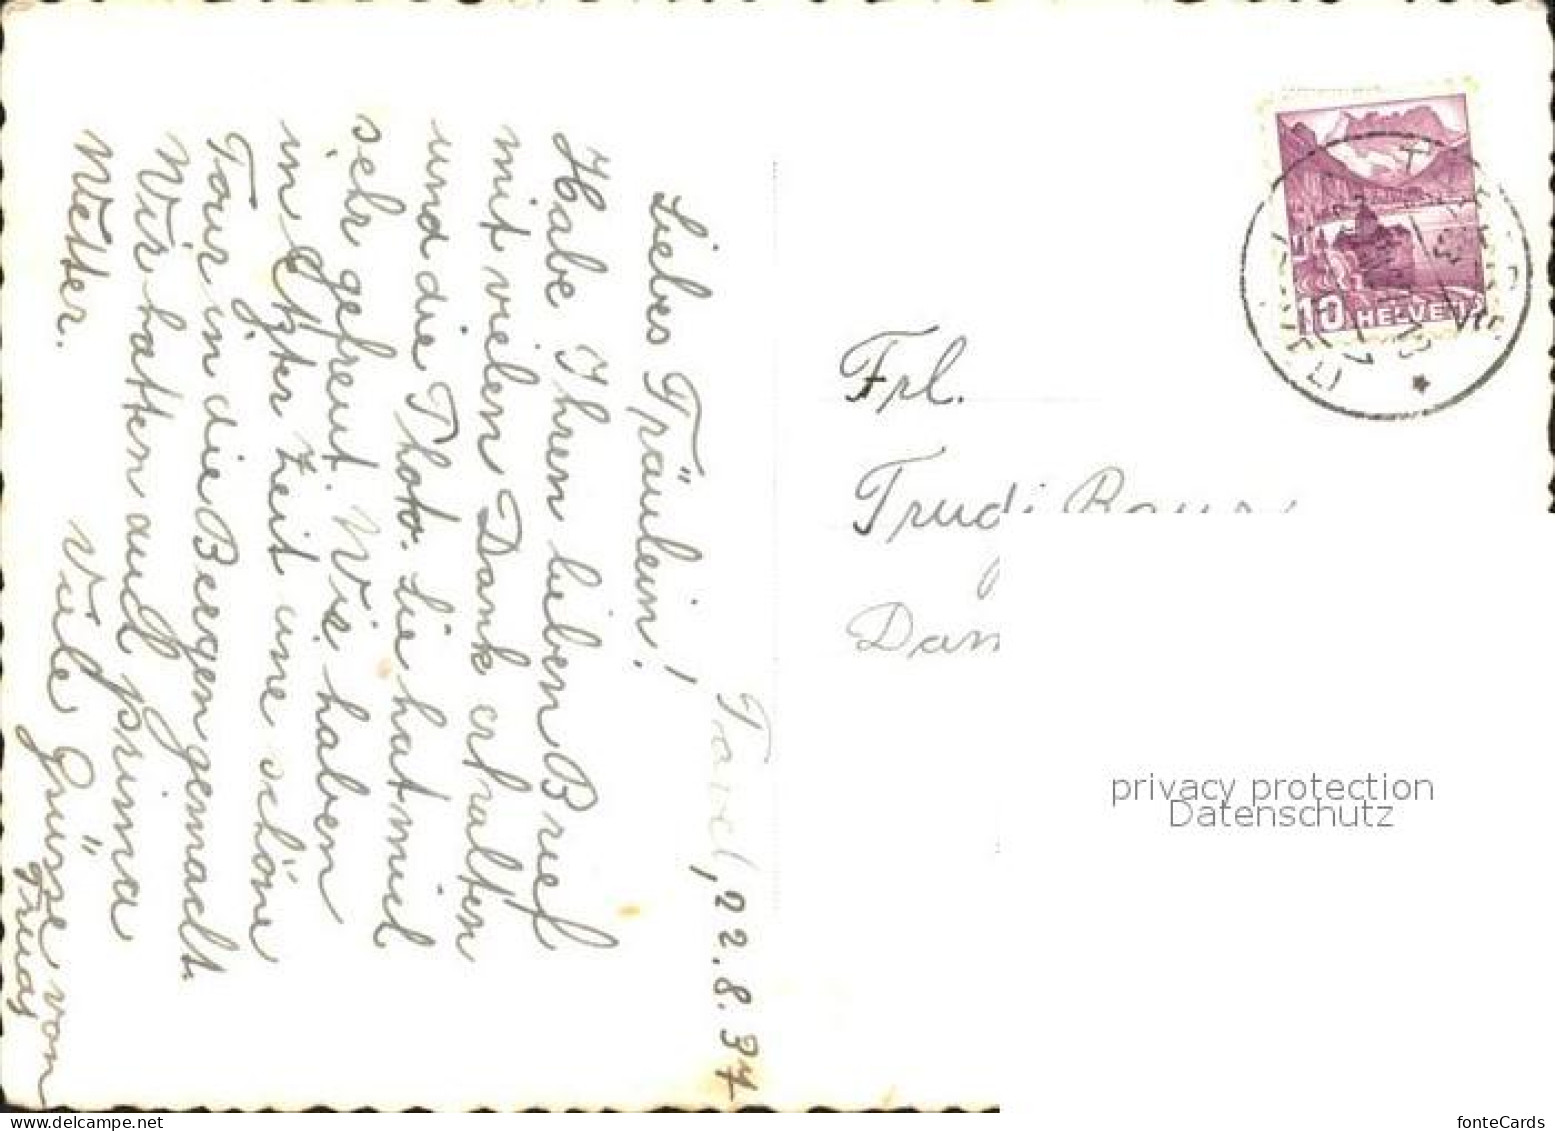 Tavel, 22.8.37
Liebes Fräulein!
Habe Ihren lieben Brief
mit vielen Dank erhalten
und die Photo. Sie hat mich
sehr gefreut. Wir haben
in letzter Zeit eine schöne
Tour in die Bergen gemacht.
Wir hatten auch prima
Wetter.
Viele Grüsse vom
10 HELVETIA
Frl.
Trudi
privacy protection
Datenschutz
fonteCards
www.delcampe.net